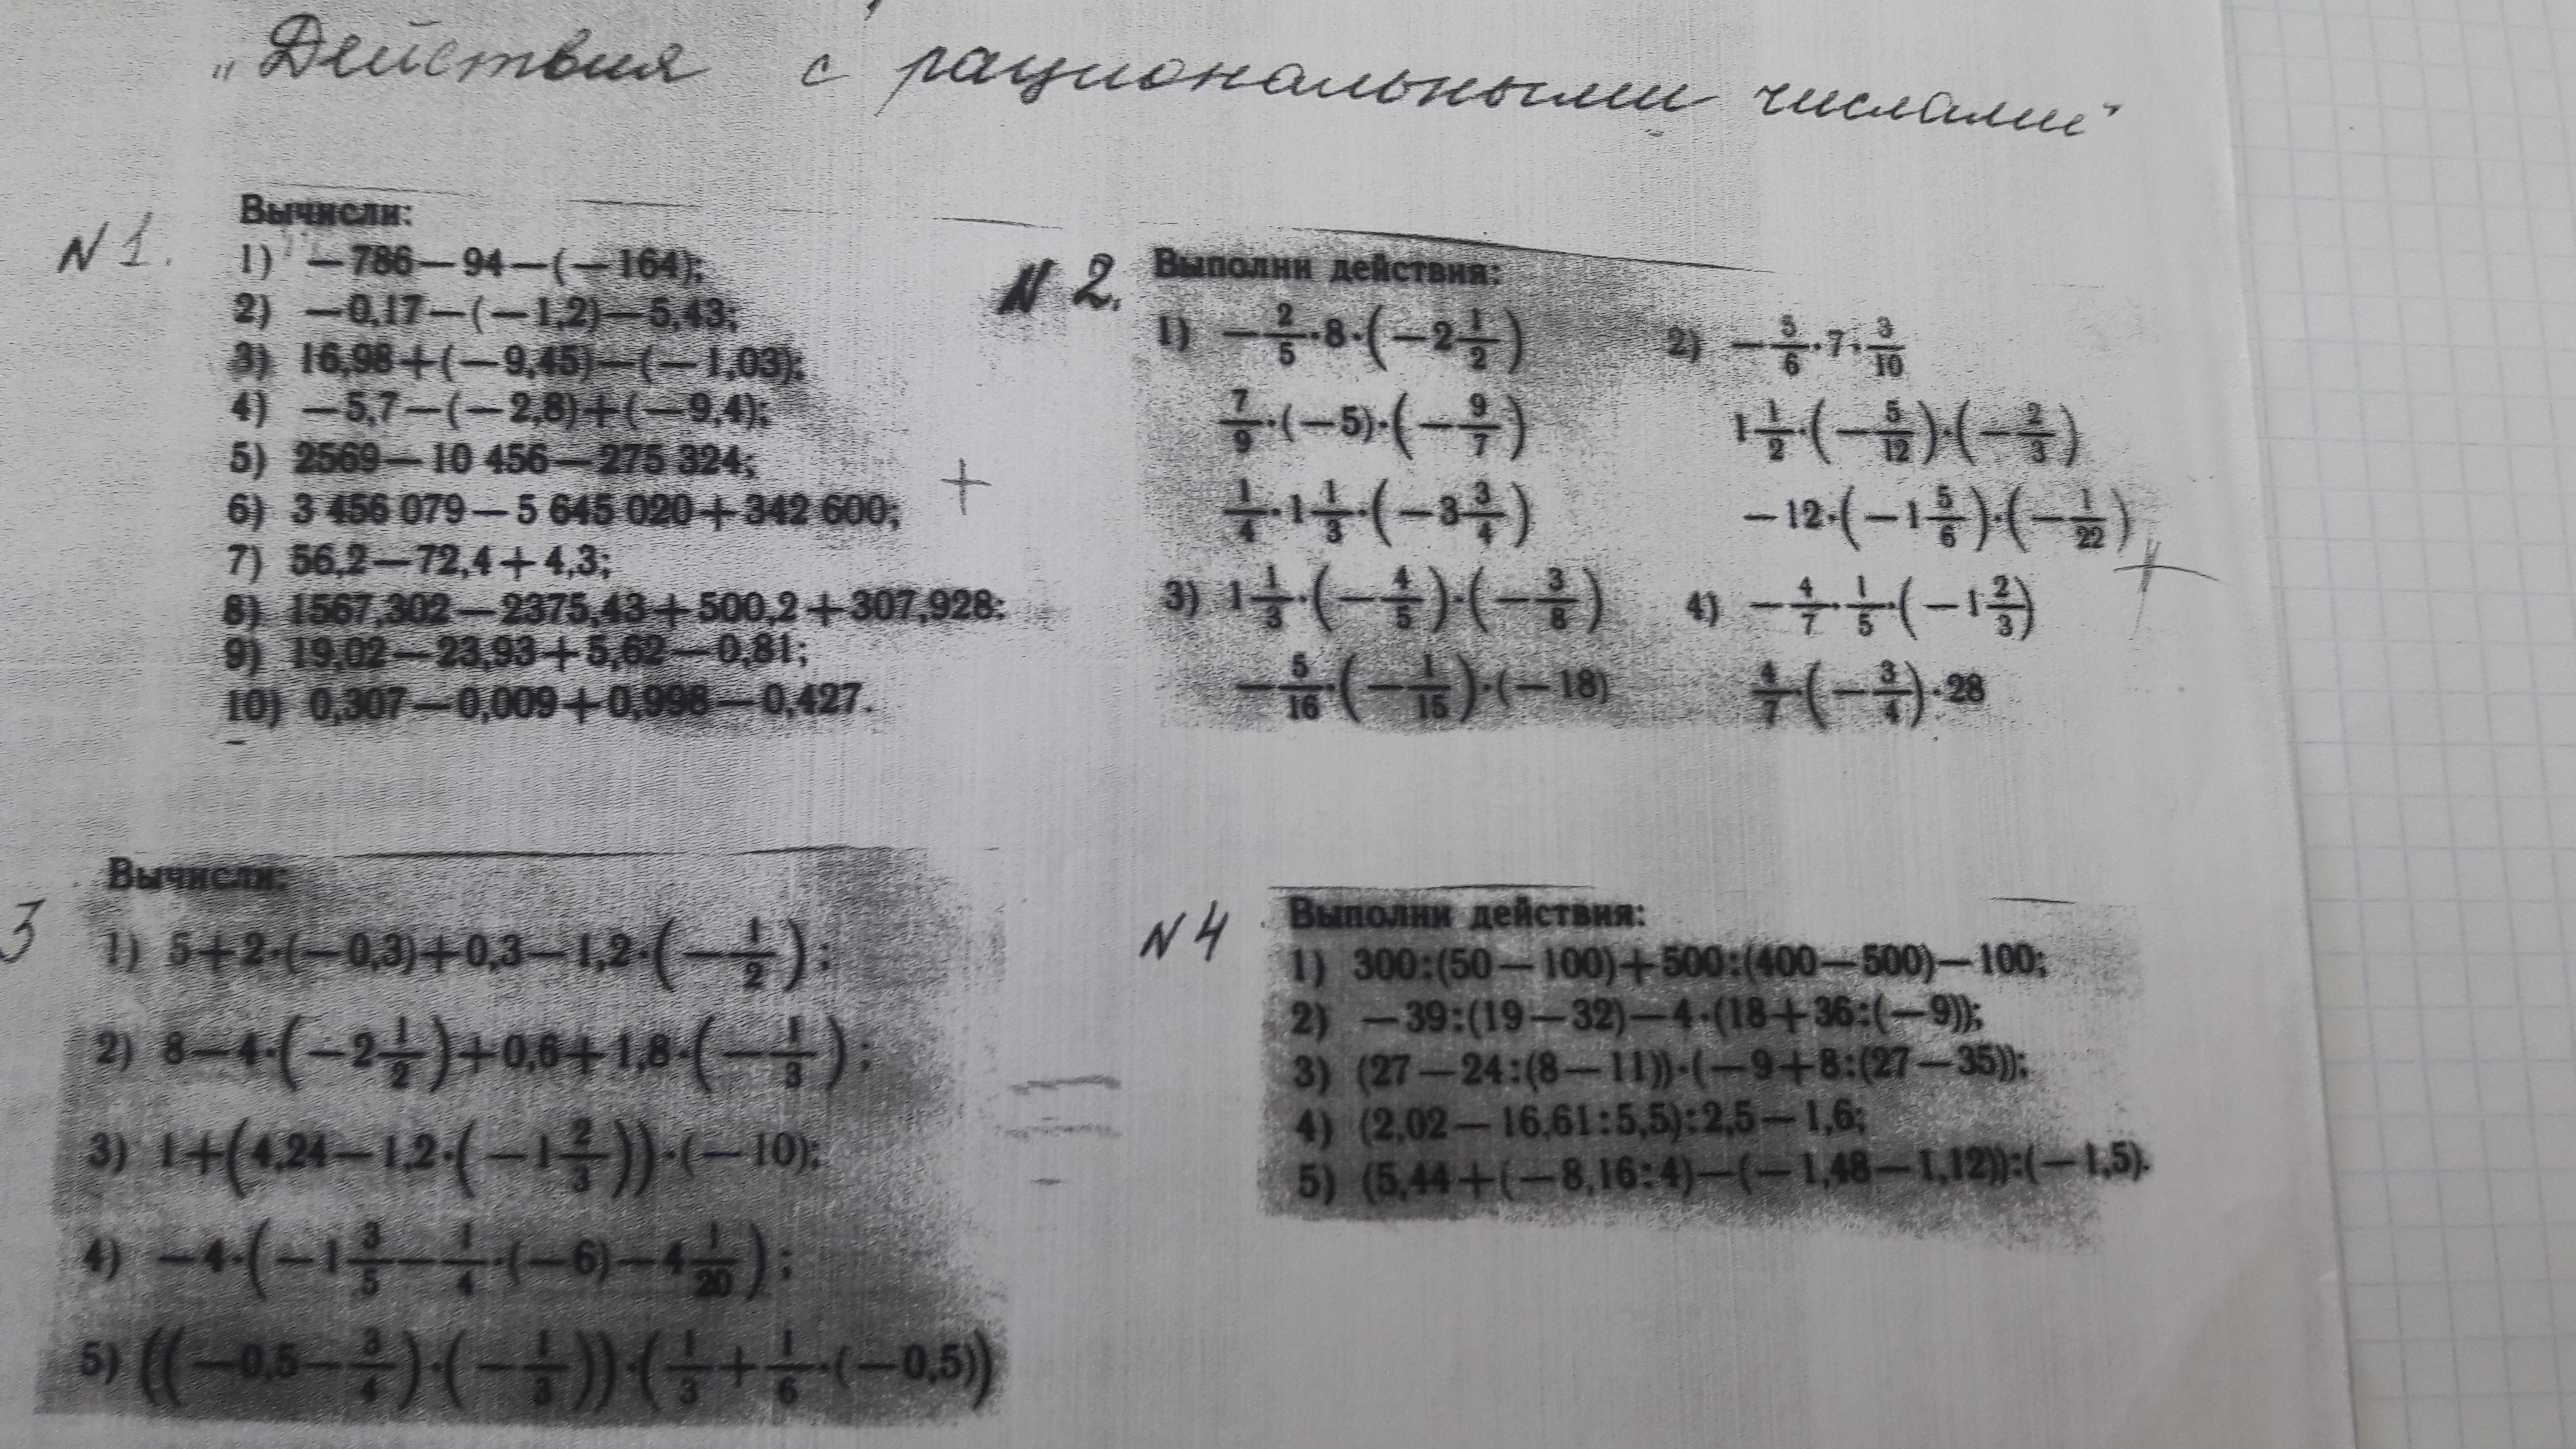 „Действия с рациональными числами"
N 1.
Вычисли:
1) −786−94−(−164);
2) −0,17−(−1,2)−5,43;
3) 16,98+(−9,45)−(−1,03);
4) −5,7−(−2,8)+(−9,4);
5) 2569−10 456−275 324;
6) 3 456 079−5 645 020+342 600;
7) 56,2−72,4+4,3;
8) 1567,302−2375,43+500,2+307,928;
9) 19,02−23,93+5,62−0,81;
10) 0,307−0,009+0,998−0,427.
+
N 2.
Выполни действия:
1) −2/5·8·(−2 1/2)
7/9·(−5)·(−9/7)
1/4·1 1/3·(−3 3/4)
2) −5/6·7·3/10
1 1/2·(−5/12)·(−2/3)
−12·(−1 5/6)·(−1/22)
+
3) 1 1/3·(−4/5)·(−3/8)
−5/16·(−1/15)·(−18)
4) −4/7·1/5·(−1 2/3)
4/7·(−3/4)·28
3
Вычисли:
1) 5+2·(−0,3)+0,3−1,2·(−1/2);
2) 8−4·(−2 1/2)+0,6+1,8·(−1/3);
3) 1+(4,24−1,2·(−1 2/3))·(−10);
4) −4·(−1 3/5−1/4·(−6)−4 1/20);
5) ((−0,5−3/4)·(−1/3))·(1/3+1/6·(−0,5))
N 4
Выполни действия:
1) 300:(50−100)+500:(400−500)−100;
2) −39:(19−32)−4·(18+36:(−9));
3) (27−24:(8−11))·(−9+8:(27−35));
4) (2,02−16,61:5,5):2,5−1,6;
5) (5,44+(−8,16:4)−(−1,48−1,12)):(−1,5).